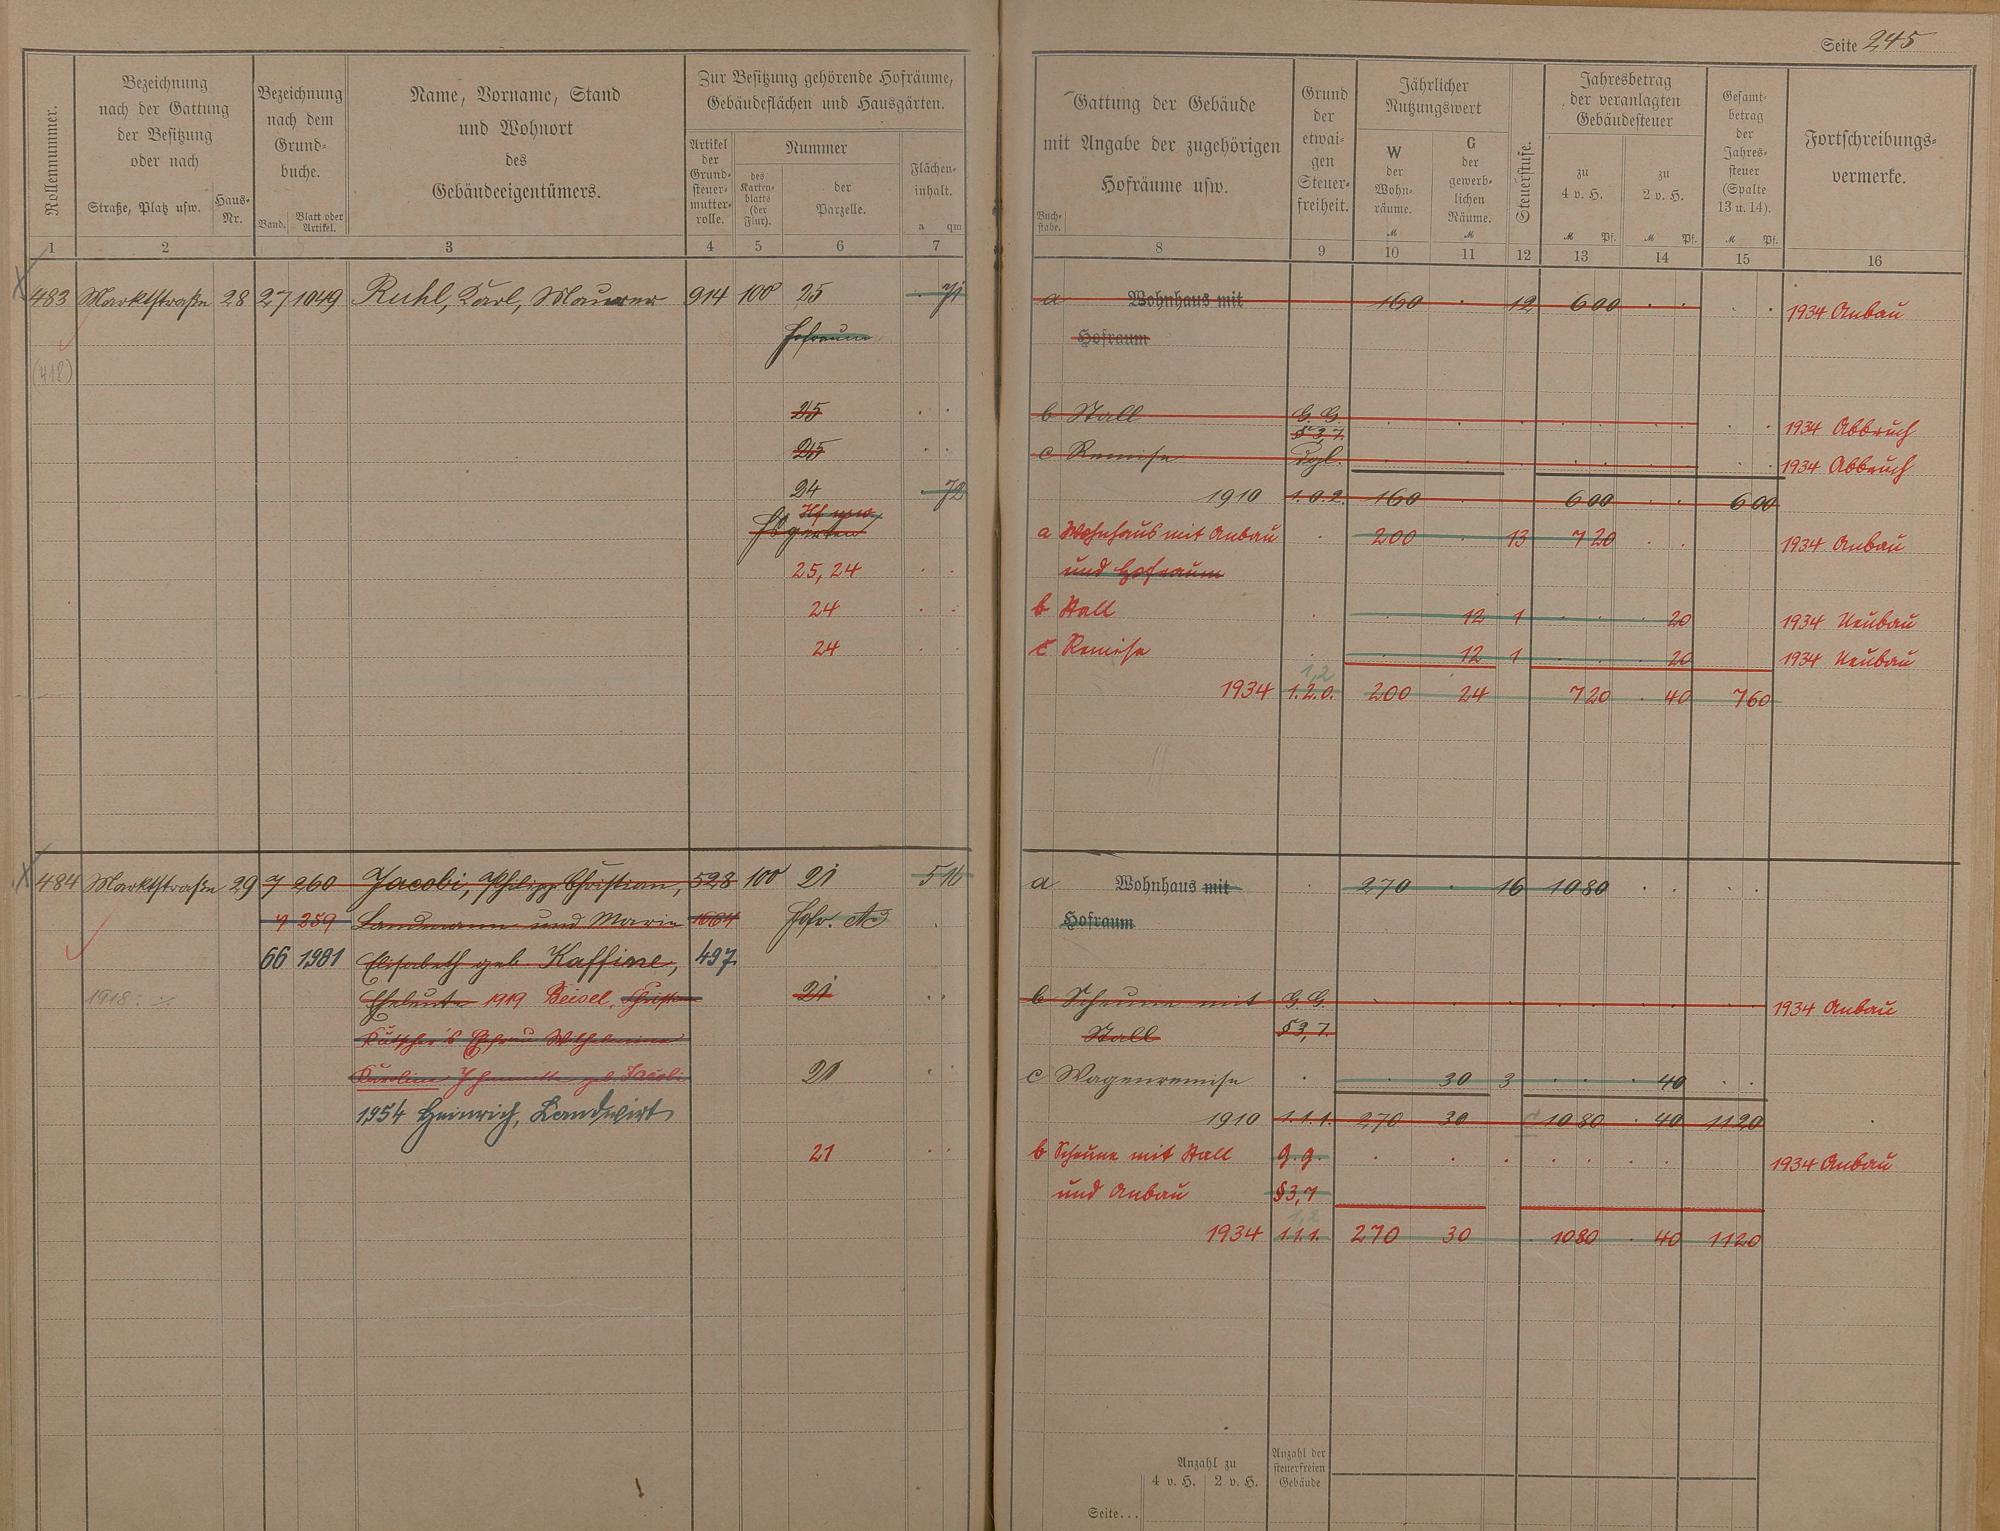 Seite 245
Rollennummer.
Bezeichnung
nach der Gattung
der Besitzung
oder nach
Straße, Platz usw.
Haus-
Nr.
Bezeichnung
nach dem
Grund-
buche.
Band.
Blatt oder
Artikel.
Name, Vorname, Stand
und Wohnort
des
Gebäudeeigentümers.
Zur Besitzung gehörende Hofräume,
Gebäudeflächen und Hausgärten.
Artikel
der
Grund-
steuer-
mutter-
rolle.
Nummer
des
Karten-
blatts
(der
Flur).
der
Parzelle.
Flächen-
inhalt.
a qm
Gattung der Gebäude
mit Angabe der zugehörigen
Hofräume usw.
Buch-
stabe.
Grund
der
etwai-
gen
Steuer-
freiheit.
Jährlicher
Nutzungswert
W
der
Wohn-
räume.
M
G
der
gewerb-
lichen
Räume.
M
Steuerstufe.
Jahresbetrag
der veranlagten
Gebäudesteuer
zu
4 v. H.
M Pf.
zu
2 v. H.
M Pf.
Gesamt-
betrag
der
Jahres-
steuer
(Spalte
13 u. 14).
M Pf.
Fortschreibungs-
vermerke.
1 2 3 4 5 6 7 8 9 10 11 12 13 14 15 16
483 Marktstraße 28 27 1049 Ruhl, Karl, Maurer 914 100 25 71 a Wohnhaus mit 160 12 6 00 1934 Anbau
Hofraum Hofraum
(418)
25 b Stall G. G. 1934 Abbruch
§ 3,7
25 c Remise dgl. 1934 Abbruch
24 72 1910 1.0.2 160 6 00 6 00
Hf usw.
Hsgarten a Wohnhaus mit Anbau 200 13 7 20 1934 Anbau
25, 24 und Hofraum
24 b Stall 12 1 20 1934 Neubau
24 c Remise 12 1 20 1934 Neubau
1,2
1934 1.2.0. 200 24 7 20 40 7 60
484 Marktstraße 29 7 260 Jacobi, Philipp Christian, 528 100 21 5 16 a Wohnhaus mit 270 16 10 80
7 259 Landmann und Marie 1664 Hofr. Hofraum
66 1981 Elisabeth geb. Kaffine, 497
1918: Eheleute 1919 Beisel, Christian 21 b Scheune mit G. G. 1934 Anbau
Kutscher's Ehefrau Wilhelmine Stall § 3,7.
Karoline geb. Jacobi 21 c Wagenremise 30 3 40
1954 Heinrich, Landwirt 1910 1.1.1. 270 30 10 80 40 11 20
21 b Scheune mit Stall g. g. 1934 Anbau
und Anbau § 3,7
1,2
1934 1.1.1. 270 30 10 80 40 11 20
Anzahl zu
4 v. H. 2 v. H.
Anzahl der
steuerfreien
Gebäude
Seite...